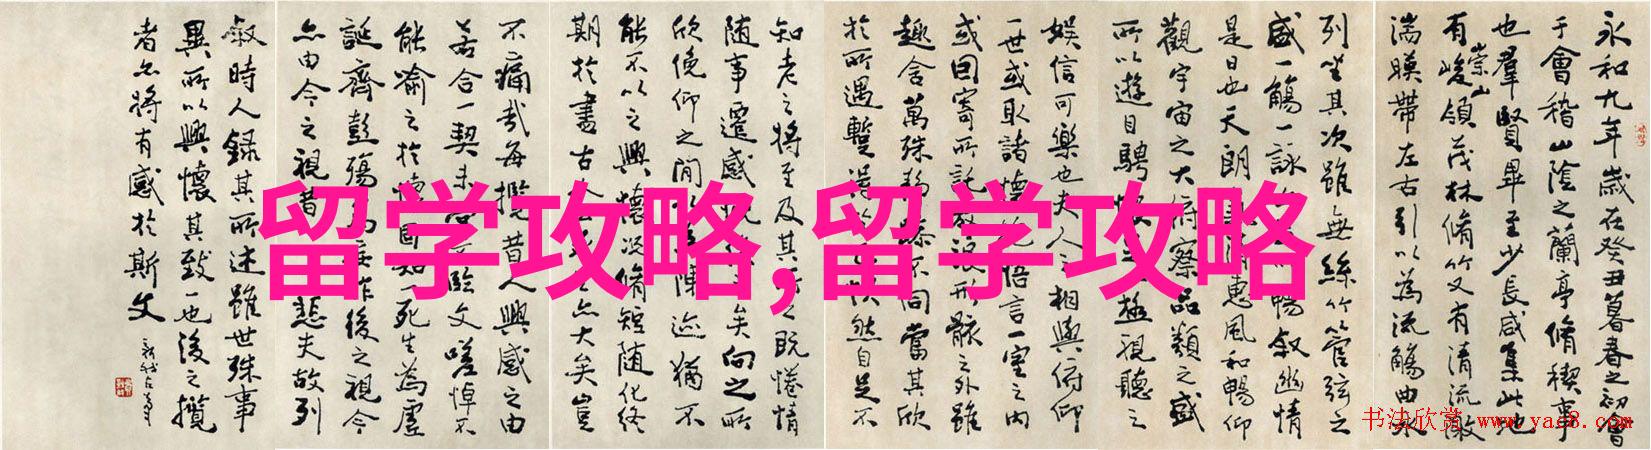 永和九年歲在癸丑暮春之初會
于會稽山陰之蘭亭脩稧事
也羣賢畢至少長咸集此地
有崇山峻領茂林脩竹又有清流激
湍暎帶左右引以為流觴曲水
列坐其次雖無絲竹管弦之
盛一觴一詠暢叙幽情
是日也天朗清惠風和暢仰
觀宇宙之大俯察品類之盛
所以遊目騁懷極視聽之
娛信可樂也夫人之相與俯仰
一世或取諸懷悟言一室之內
或因寄所託放浪形骸之外雖
趣舍萬殊不同當其欣
於所遇蹔得快然自足不
知老之將至及其所之既惓情
隨事遷感矣向之所
欣俛仰之間陳迹猶不
能不以之興懷況脩短隨化終
期於盡古亦大矣豈
不痛哉每攬昔人興感之由
若合一契未臨文嗟悼不
能喻之於懷固知一死生為虛
誕齊彭殤為妄作後之視今
亦由今之視昔悲夫故列
叙時人錄其所述雖世殊事
異所以興懷其致一也後之攬
者亦將有感於斯文
留学攻略,留学攻略
书法欣赏 www.yac8.com